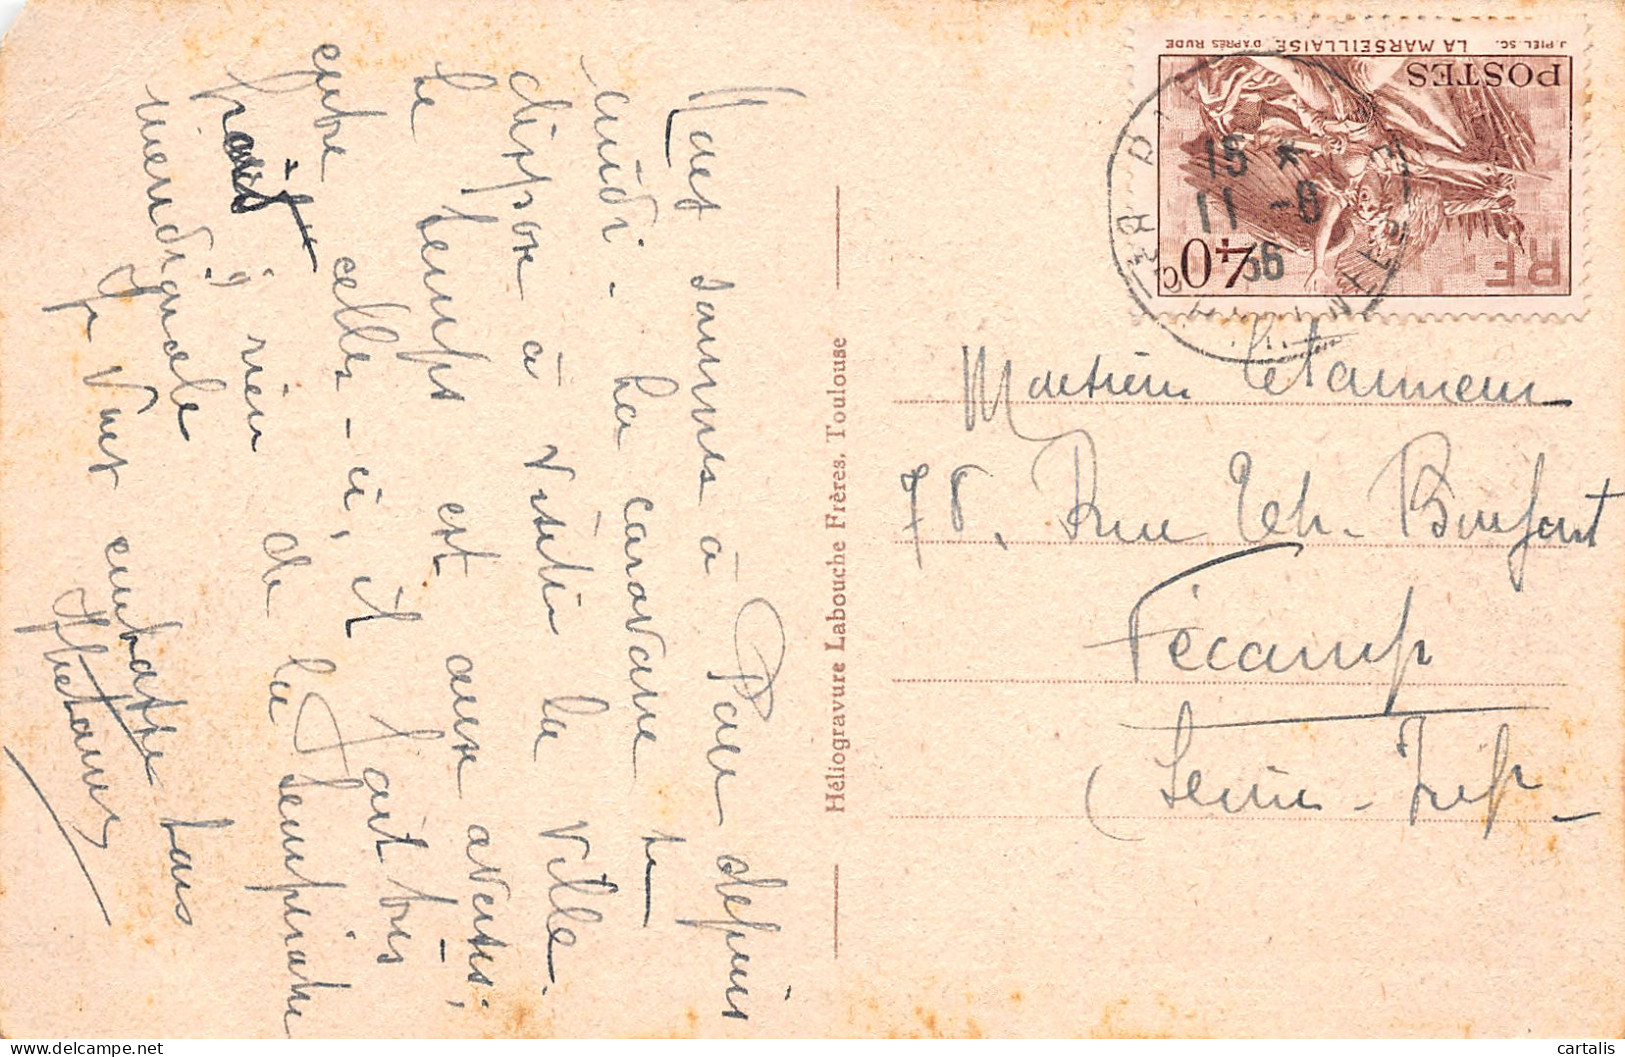 Nous sommes à Pau depuis
midi. La caravane se
dispose à visiter la ville.
Le temps est aux averses ;
entre celles-ci, il fait très
frais
rien de la température
méridionale
Je vous embrasse tous
Héliogravure Labouche Frères, Toulouse
J. PIEL SC. LA MARSEILLAISE D'APRÈS RUDE
POSTES
RF
40c
15 *
11 -8
36
Monsieur
78. Rue Th. Boufart
Fécamp
(Seine-Inf.
cartalis